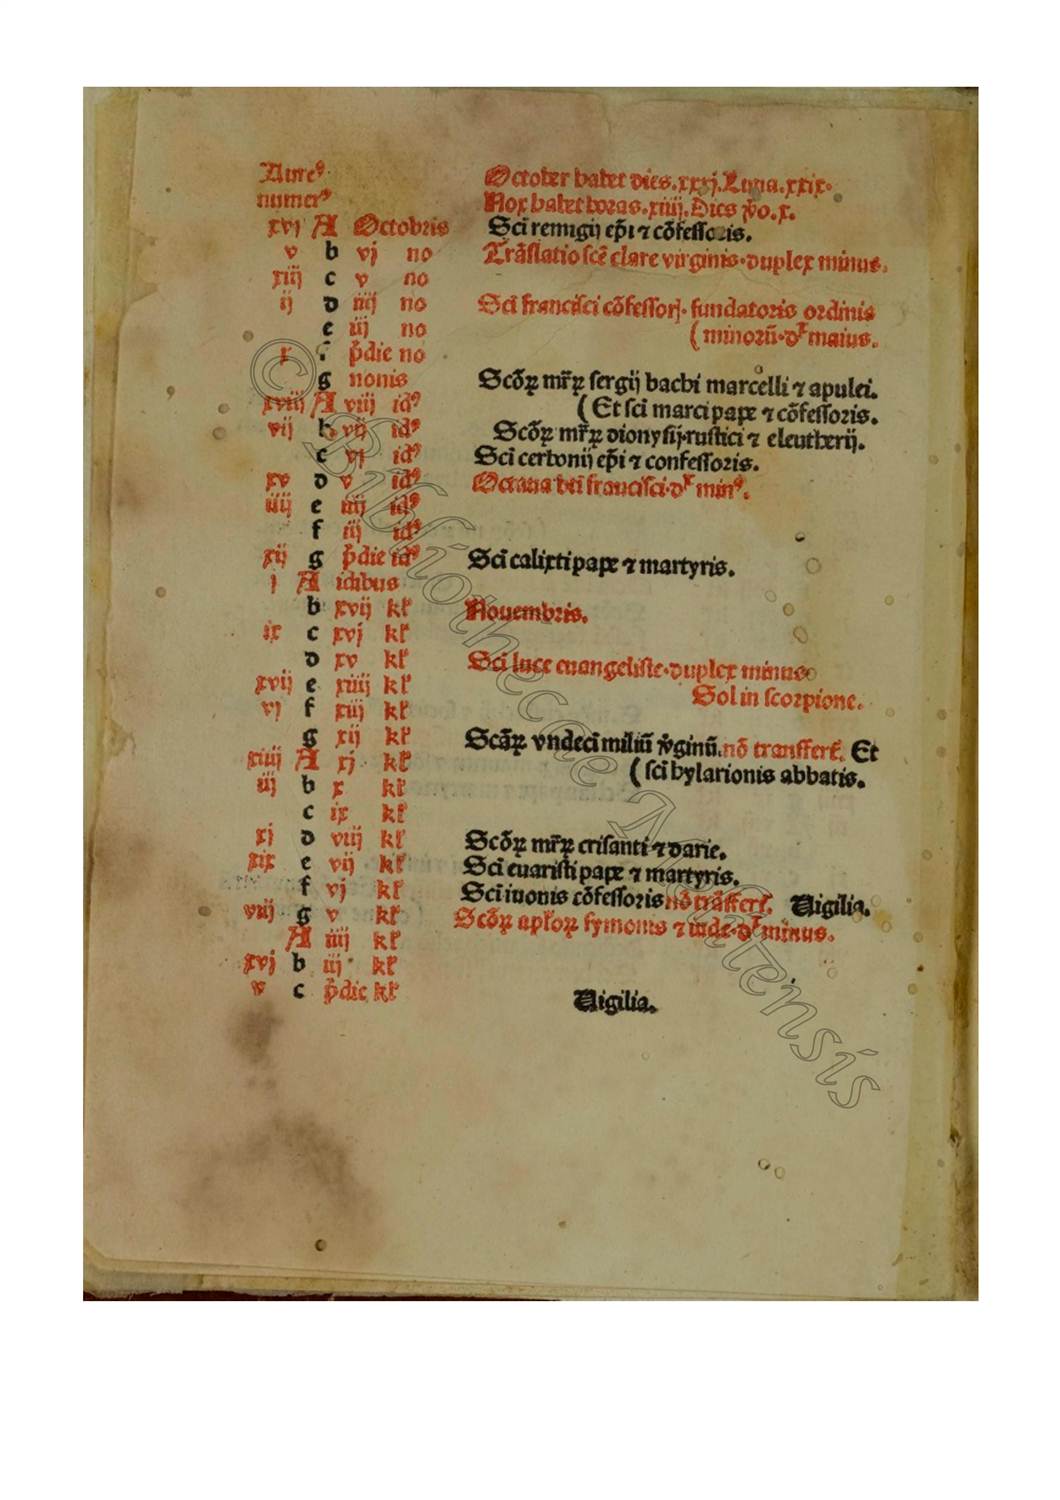 Aureꝰ October habet dies.xxxj.Luna.xxix.
numerꝰ Nox habet horas.xiiij.Dies v̾o.x.
xvj A Octobris Sci̅ remigij ep̅i ⁊ cōfessoris.
v b vj no Trāslatio sce̅ clare virginis.duplex minus.
xiij c v no
ij d iiij no Sci̅ francisci cōfessorꝭ. fundatoris ordinis
e iij no (minorū.dr̄ maius.
x f p̅die no
g nonis Scōꝝ mr̄ꝝ sergij bachi marcelli ⁊ apulei.
(Et sci̅ marci pape ⁊ cōfessoris.
xviij A viij idꝰ
vij b vij idꝰ Scōꝝ mr̄ꝝ dionysij.rustici ⁊ eleutherij.
c vj idꝰ Sci̅ cerbonij ep̅i ⁊ confessoris.
xv d v idꝰ Octaua bt̅i francisci.dr̄ minꝰ.
iiij e iiij idꝰ
f iij idꝰ
xij g p̅die idꝰ Sci̅ calixti pape ⁊ martyris.
j A idibus
b xvij kl̅ Nouembris.
ix c xvj kl̅
d xv kl̅ Sci̅ luce euangeliste.duplex minus
xvij e xiiij kl̅ Sol in scorpione.
vj f xiij kl̅
g xij kl̅ Scāꝝ vndeci̅ miliū v̾ginū.nō transfert̅. Et
xiiij A xj kl̅ (sci̅ hylarionis abbatis.
iij b x kl̅
c ix kl̅
xj d viij kl̅ Scōꝝ mr̄ꝝ crisanti ⁊ darie.
xix e vij kl̅ Sci̅ euaristi pape ⁊ martyris.
f vj kl̅ Sci̅ iuonis cōfessoris nō trāsfert̅. Uigilia.
viij g v kl̅ Scōꝝ apl̅oꝝ symonis ⁊ iude.dr̄ minus.
A iiij kl̅
xvj b iij kl̅
v c p̅die kl̅ Uigilia.
© Bibliothecae Nantensis